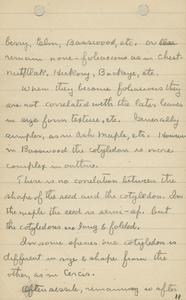 berry, Elm, Basswood, etc. or
remain none-foliaceous as in Chest-
nut, Oak, Hickory, Buckeye, etc.
When they become foliaceous they
are not correlated with the later leaves
in size form texture, etc. Generally
simpler, as in Ash Maple, etc. However
in Basswood the cotyledon is more
complex in outline.
There is no correlation between the
shape of the seed and the cotyledon. In
the maple the seed is semi- but
the cotyledons are long & folded.
In some species one cotyledon is
different in size & shape from the
other, as in Cercis.
Often sessile, remaining so after